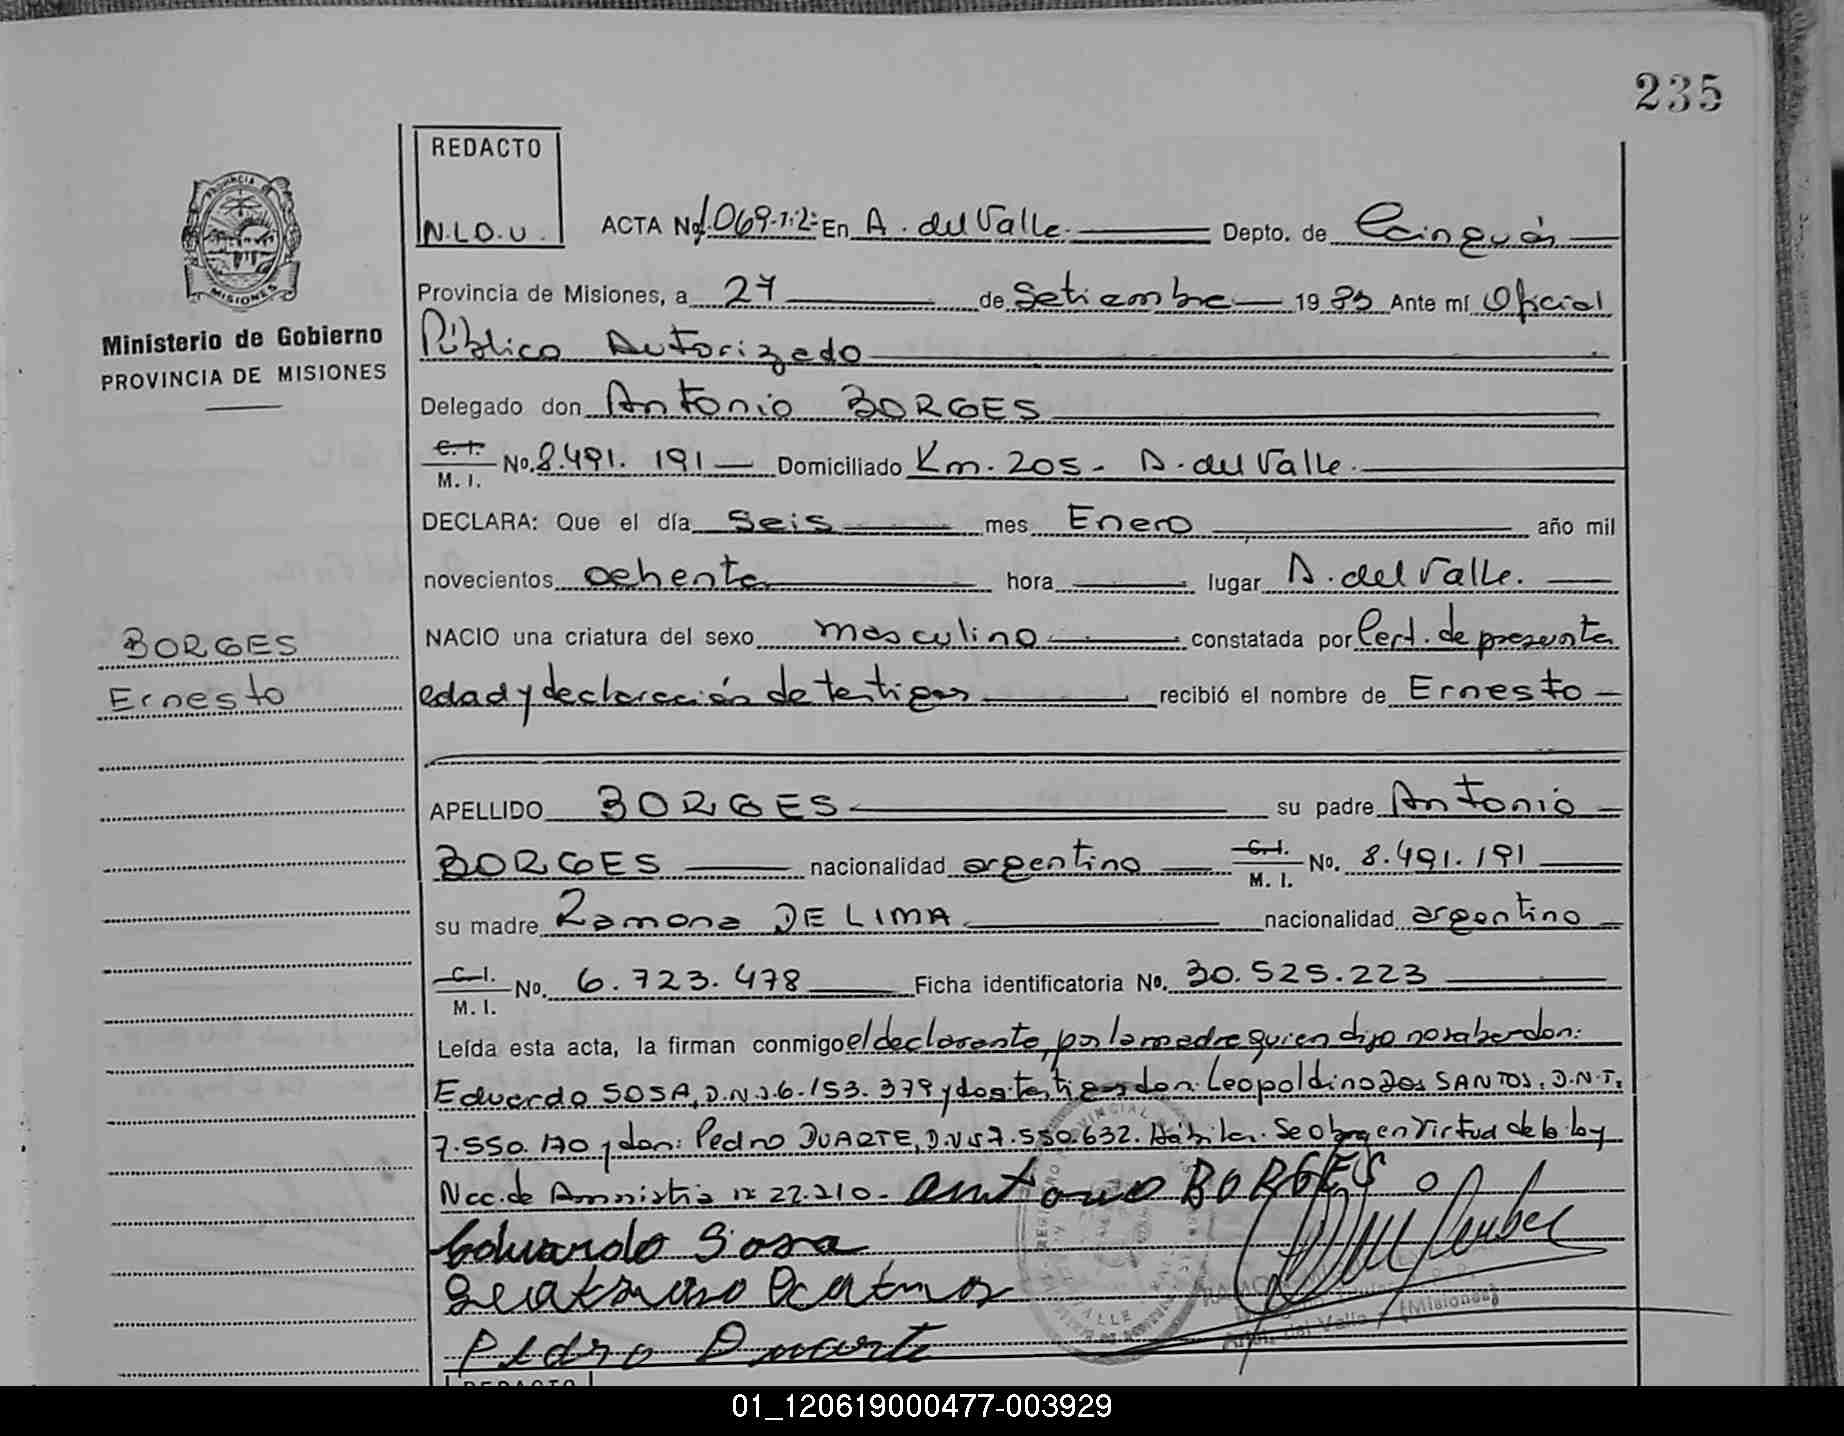 235
REDACTO
N.L.O.U.
PROVINCIA
MISIONES
Ministerio de Gobierno
PROVINCIA DE MISIONES
ACTA Nº 1.069-T:2: En A. del Valle Depto. de Cainguás
Provincia de Misiones, a 27 de Setiembre 1983 Ante mí Oficial
Público Autorizado
Delegado don Antonio BORGES
C. I.
M. I. No. 8.491.191 Domiciliado Km. 205 - A. del Valle.
DECLARA: Que el día Seis mes Enero año mil
novecientos ochenta hora lugar A. del Valle.
NACIO una criatura del sexo masculino constatada por Cert. de presunta
edad y declaración de testigos recibió el nombre de Ernesto
BORGES
Ernesto
APELLIDO BORGES su padre Antonio
BORGES nacionalidad argentino C. I. M. I. No. 8.491.191
su madre Ramona DE LIMA nacionalidad argentino
C. I.
M. I. No. 6.723.478 Ficha identificatoria No. 30.525.223
Leída esta acta, la firman conmigo el declarante, por la madre quien dijo no saber don:
Eduardo SOSA, D.N.I. 6.153.379 y dos testigos don: Leopoldino Dos SANTOS, D.N.I.
7.550.170 y don: Pedro DUARTE, D.N.I 7.550.632. Hábiles. Se obra en Virtud de la ley
Nac. de Amnistía nº 22.210 - Antonio BORGES
Eduardo Sosa
Pedro Duarte
del Valle (Misiones)
REDACTO
01_120619000477-003929